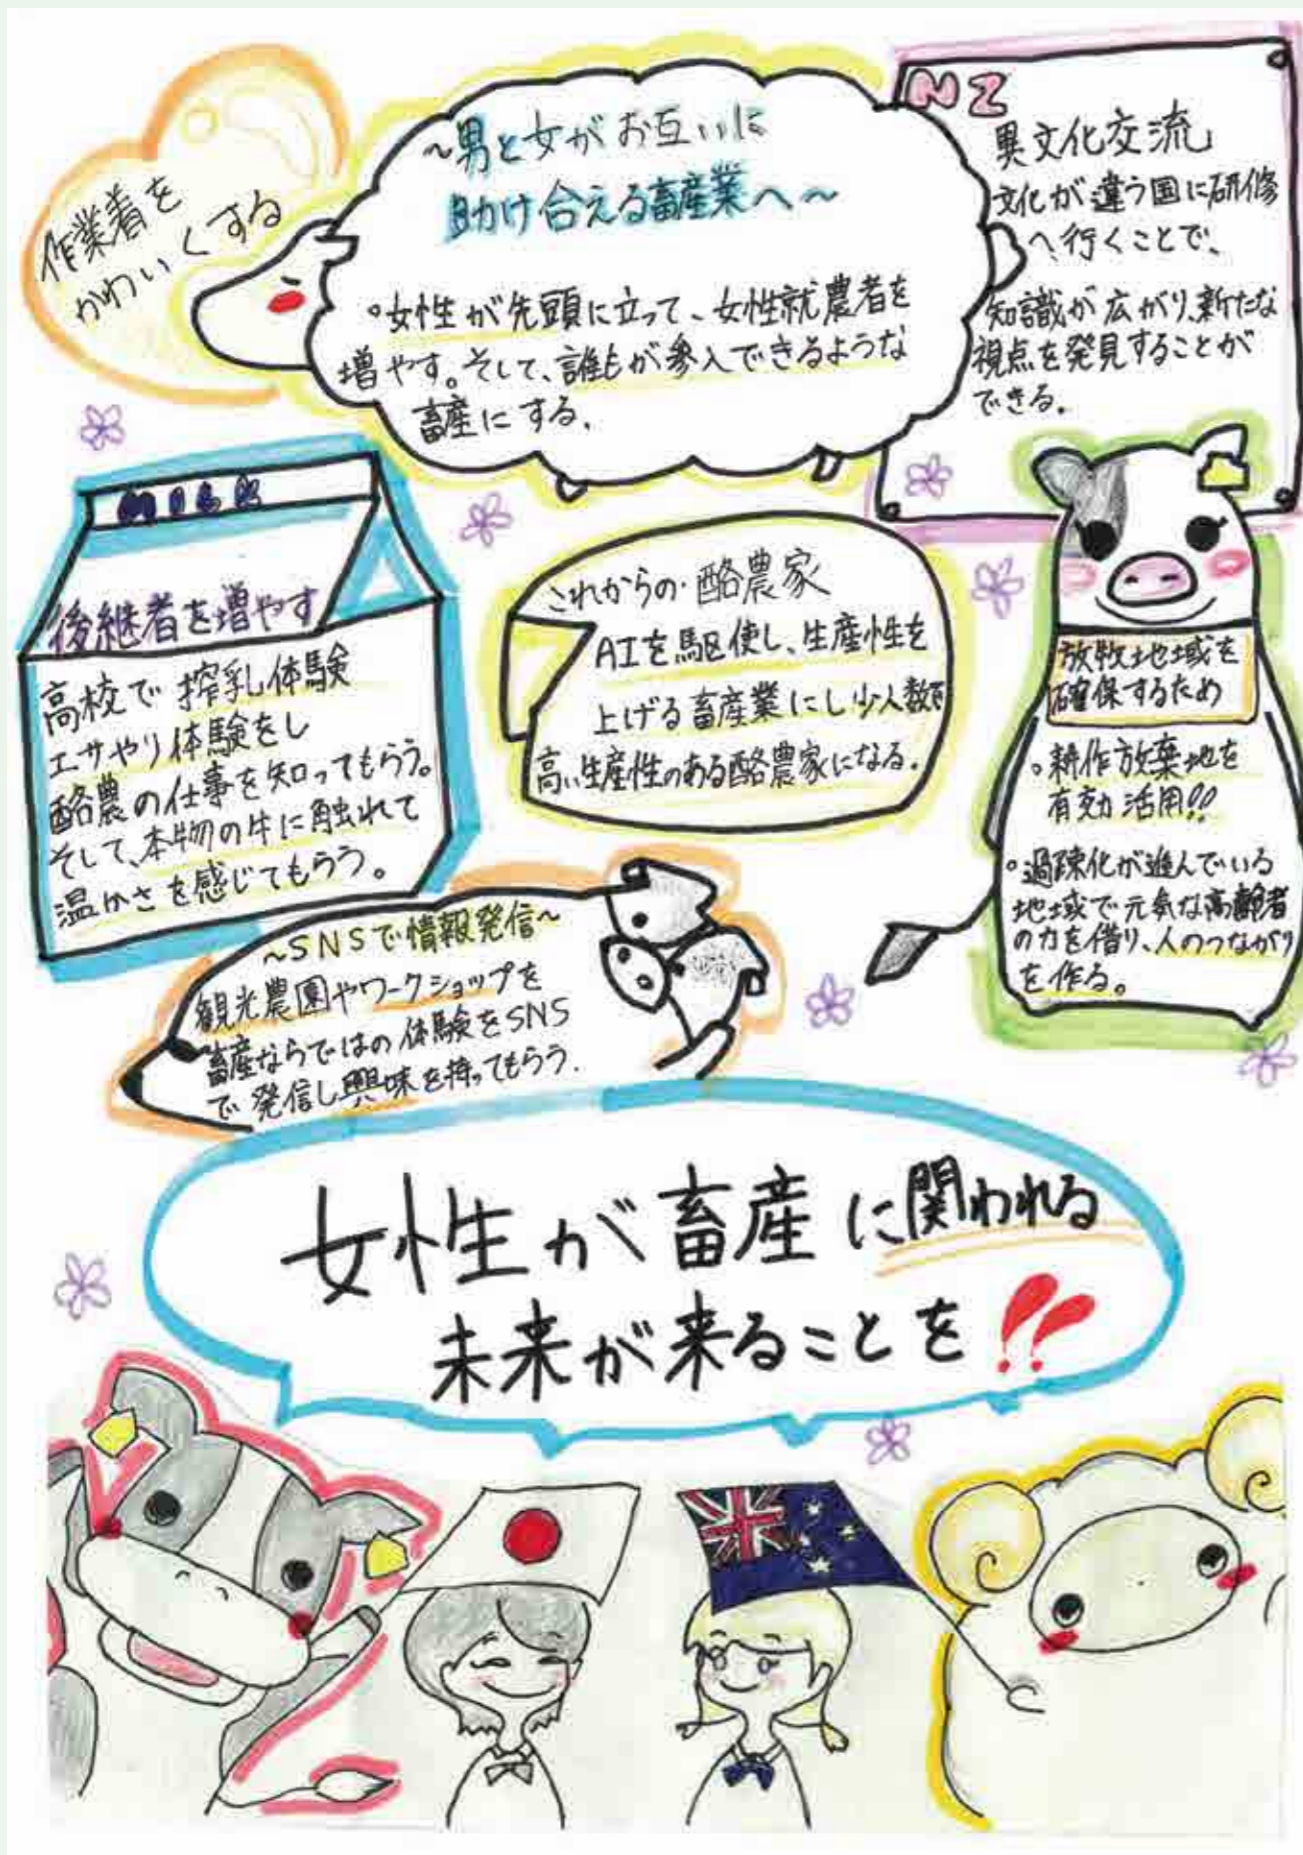 作業着を
かわいくする
~男と女がお互いに
助け合える畜産業へ~
。女性が先頭に立って、女性就農者を
増やす。そして、誰もが参入できるような
畜産にする。
NZ
異文化交流
文化が違う国に研修
へ行くことで、
知識が広がり、新たな
視点を発見することが
できる。
MILK
後継者を増やす
高校で搾乳体験
エサやり体験をし
酪農の仕事を知ってもらう。
そして、本物の牛に触れて
温かさを感じてもらう。
これからの・酪農家
AIを駆使し、生産性を
上げる畜産業にし少人数で
高い生産性のある酪農家になる。
放牧地域を
確保するため
。耕作放棄地を
有効活用!!
。過疎化が進んでいる
地域で元気な高齢者
の力を借り、人のつながり
を作る。
~SNSで情報発信~
観光農園やワークショップを
畜産ならではの体験をSNS
で発信し興味を持ってもらう.
女性が畜産に関われる
未来が来ることを!!